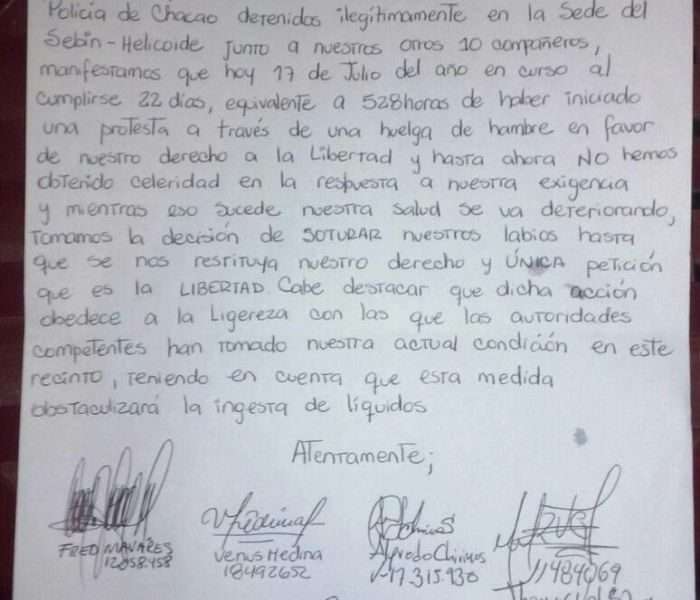 Policía de Chacao detenidos ilegítimamente en la Sede del
Sebin-Helicoide junto a nuestros otros 10 compañeros,
manifestamos que hoy 17 de Julio del año en curso al
cumplirse 22 días, equivalente a 528 horas de haber iniciado
una protesta a través de una huelga de hambre en favor
de nuestro derecho a la Libertad y hasta ahora NO hemos
obtenido celeridad en la respuesta a nuestra exigencia
y mientras eso sucede nuestra salud se va deteriorando,
Tomamos la decisión de SOTURAR nuestros labios hasta
que se nos restituya nuestro derecho y ÚNICA petición
que es la LIBERTAD. Cabe destacar que dicha acción
obedece a la Ligereza con las que las autoridades
competentes han tomado nuestra actual condición en este
recinto, teniendo en cuenta que esta medida
obstaculizará la ingesta de líquidos.
Atentamente;
FRED MAVARES Venus Medina Alfredo Chirinos
12.058.458 18492652 V-17.315.930 11484069